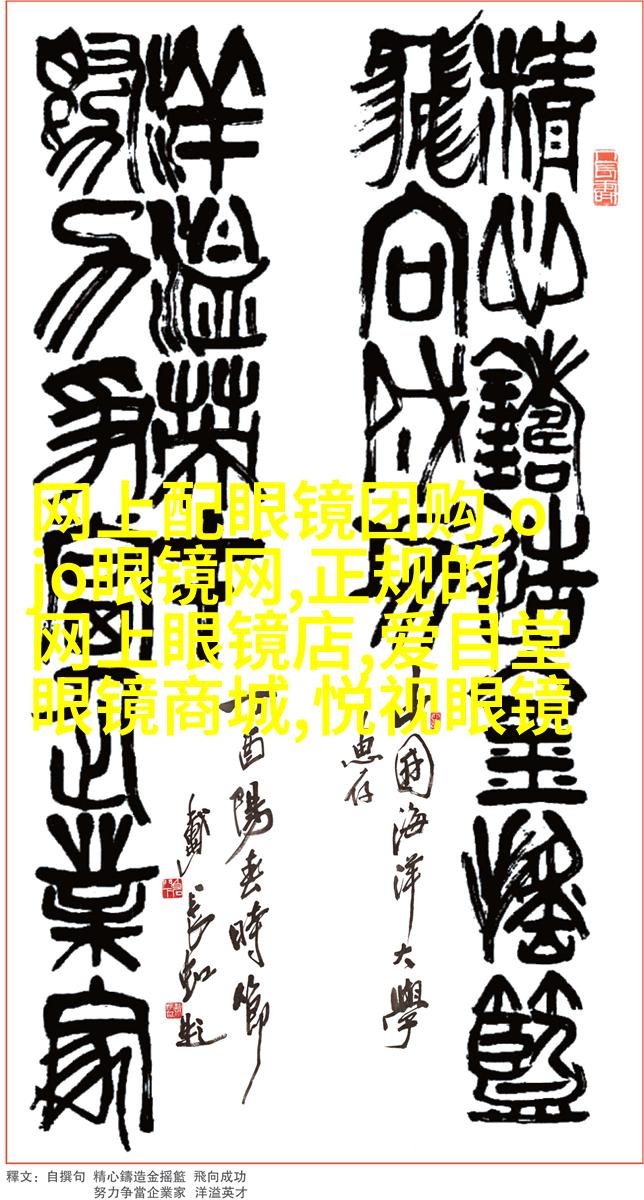 精心鑄造金摇籃
飛向成功
中國海洋大學
惠存
洋溢英才
努力争當企業家
丁酉陽春時節
戴長虹題
网上配眼镜团购,o
jo眼镜网,正规的
网上眼镜店,爱目堂
眼镜商城,悦视眼镜
釋文：自撰句 精心鑄造金摇籃 飛向成功
努力争當企業家 洋溢英才